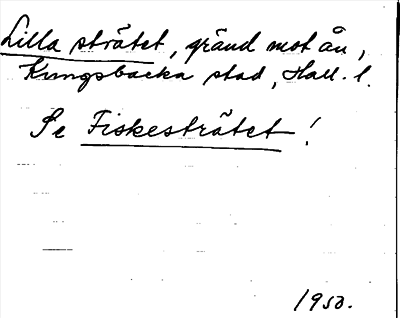 Lilla strätet, gränd mot ån,
Kungsbacka stad, Hall. l.
Se Fiskesträtet!
1950.